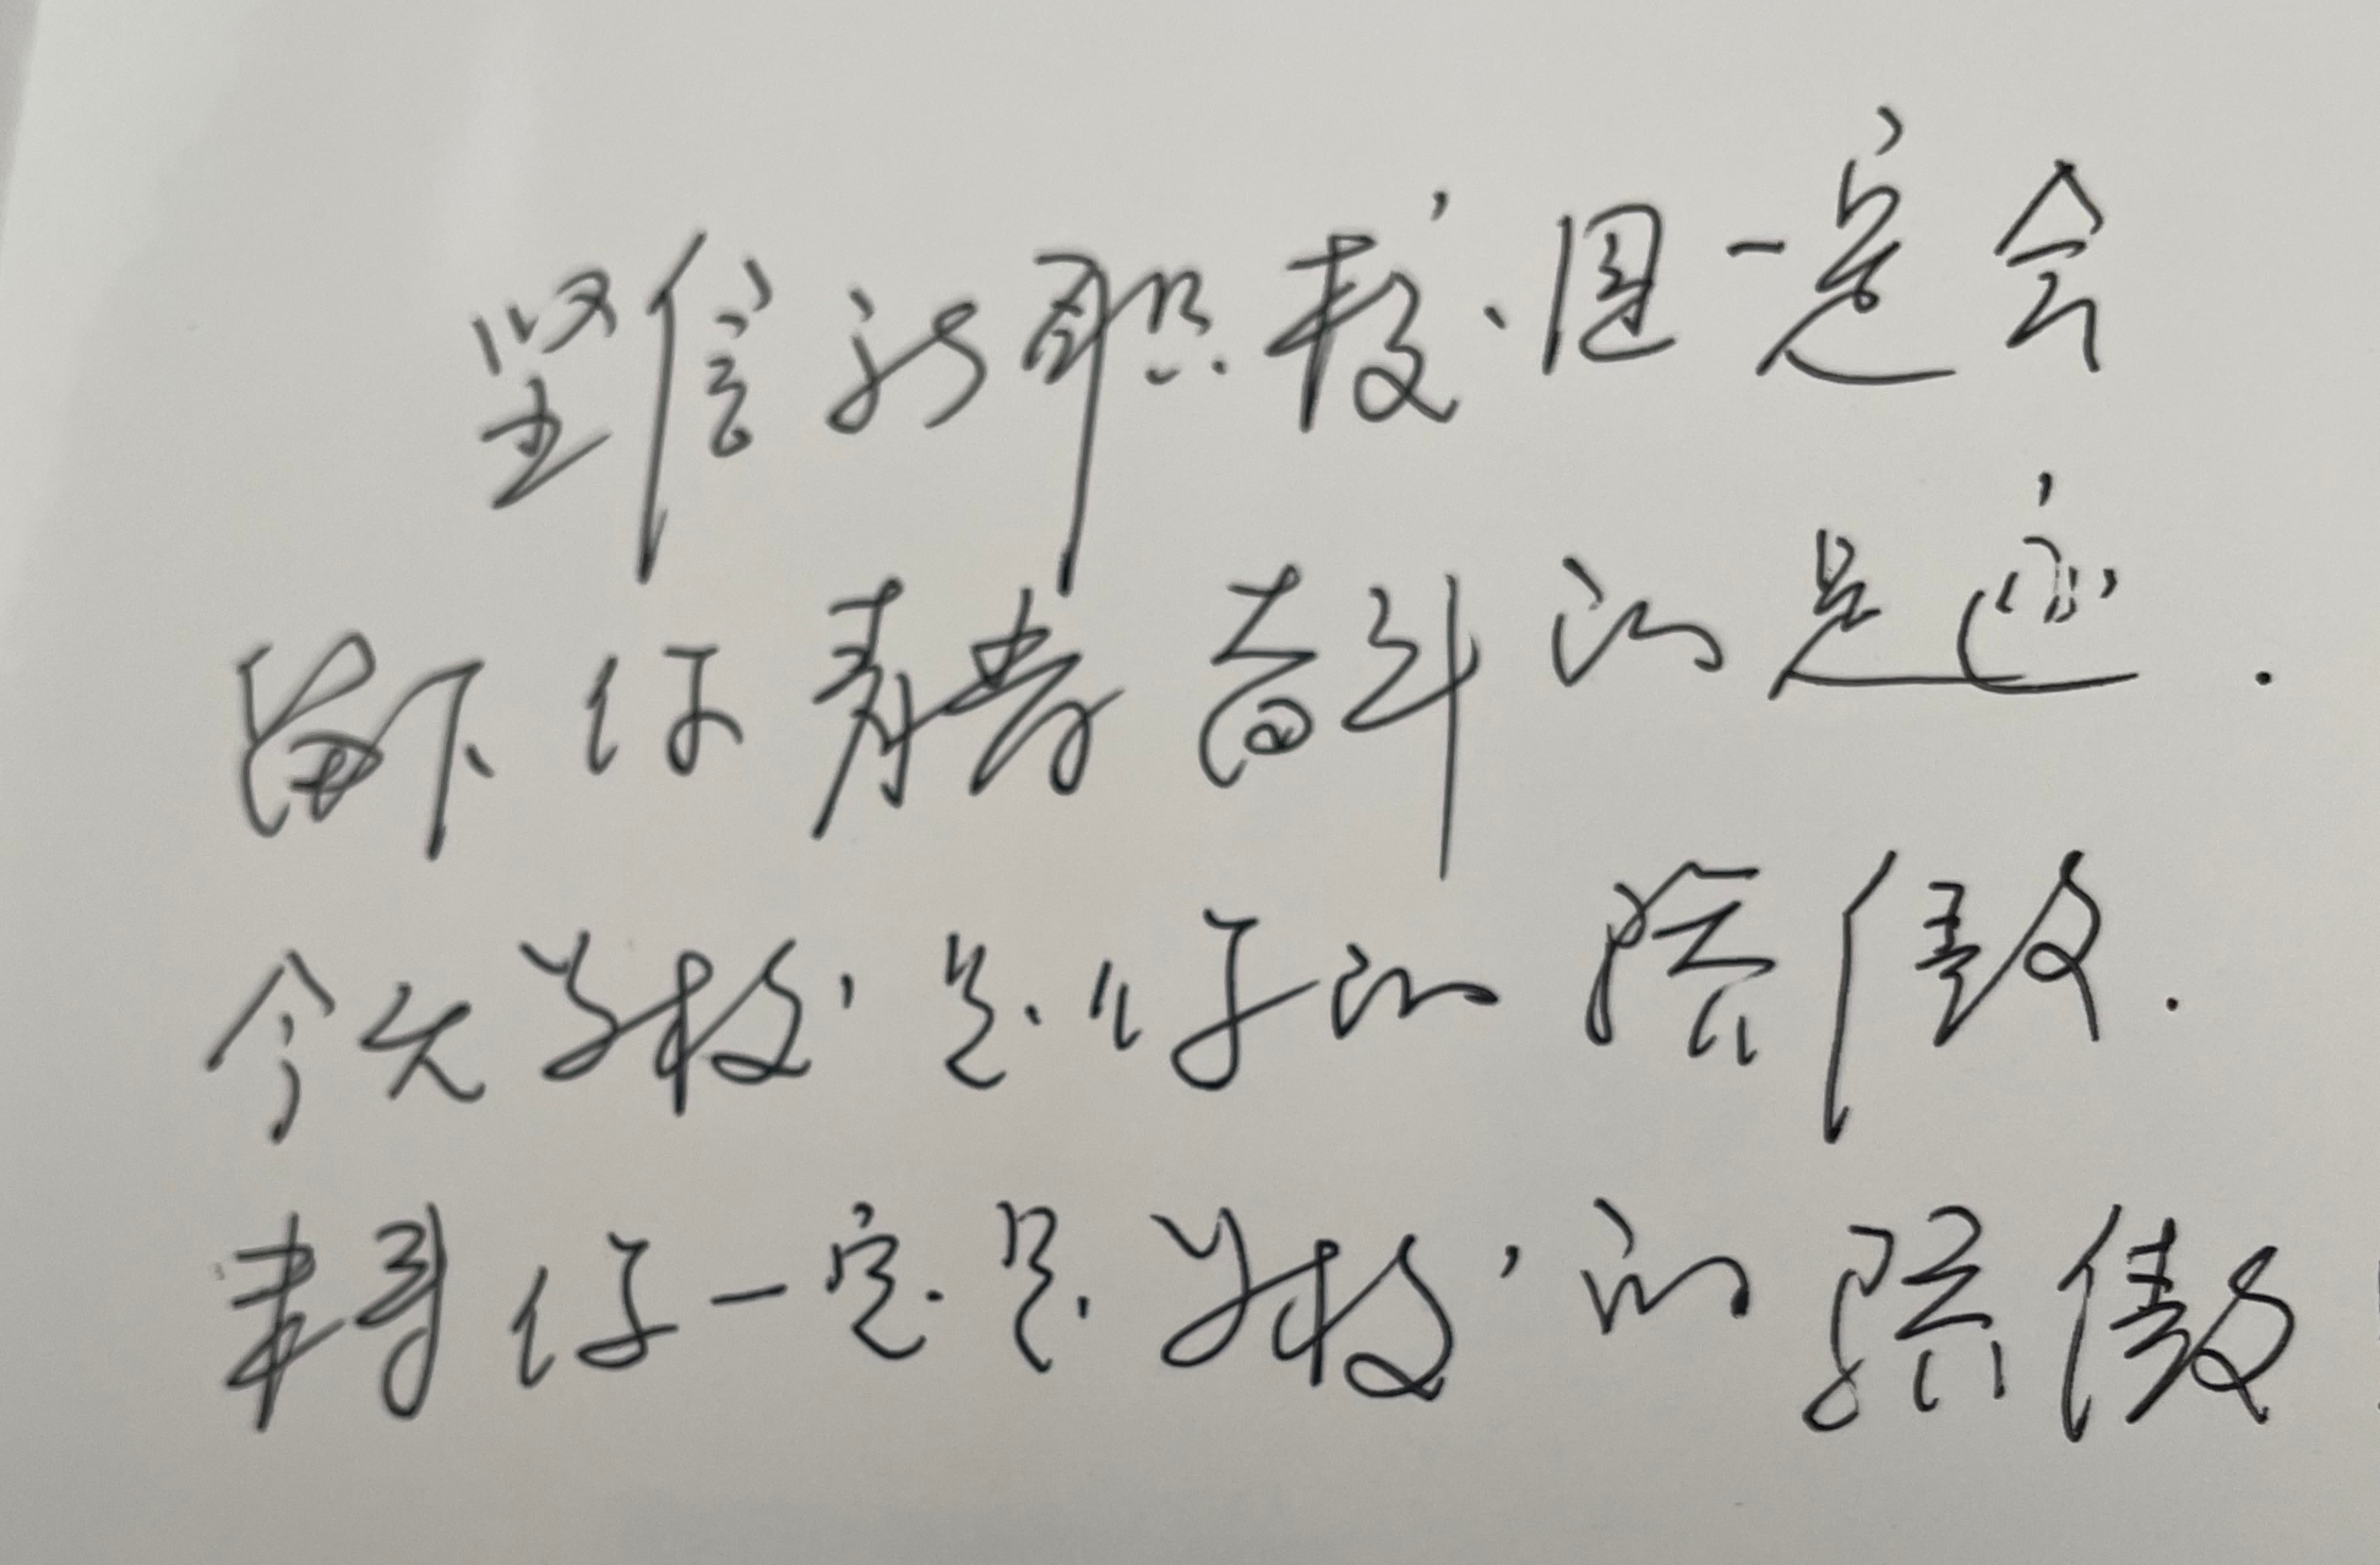 坚信高职校园一定会
留下你青春奋斗的足迹.
今天学校是你的骄傲.
来年你一定是学校的骄傲!